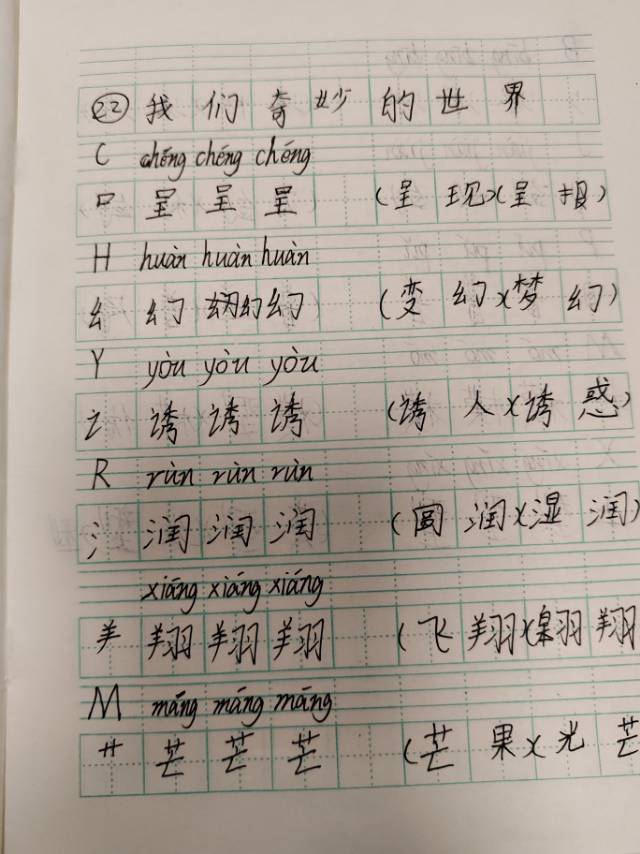 ㉒ 我们奇妙的世界
C chéng chéng chéng
口 呈 呈 呈 (呈现)(呈报)
H huàn huàn huàn
幺 幻 幻 幻 (变幻)(梦幻)
Y yòu yòu yòu
讠 诱 诱 诱 (诱人)(诱惑)
R rùn rùn rùn
氵 润 润 润 (圆润)(湿润)
xiáng xiáng xiáng
羊 翔 翔 翔 (飞翔)(翱翔
M máng máng máng
艹 芒 芒 芒 (芒果)(光芒